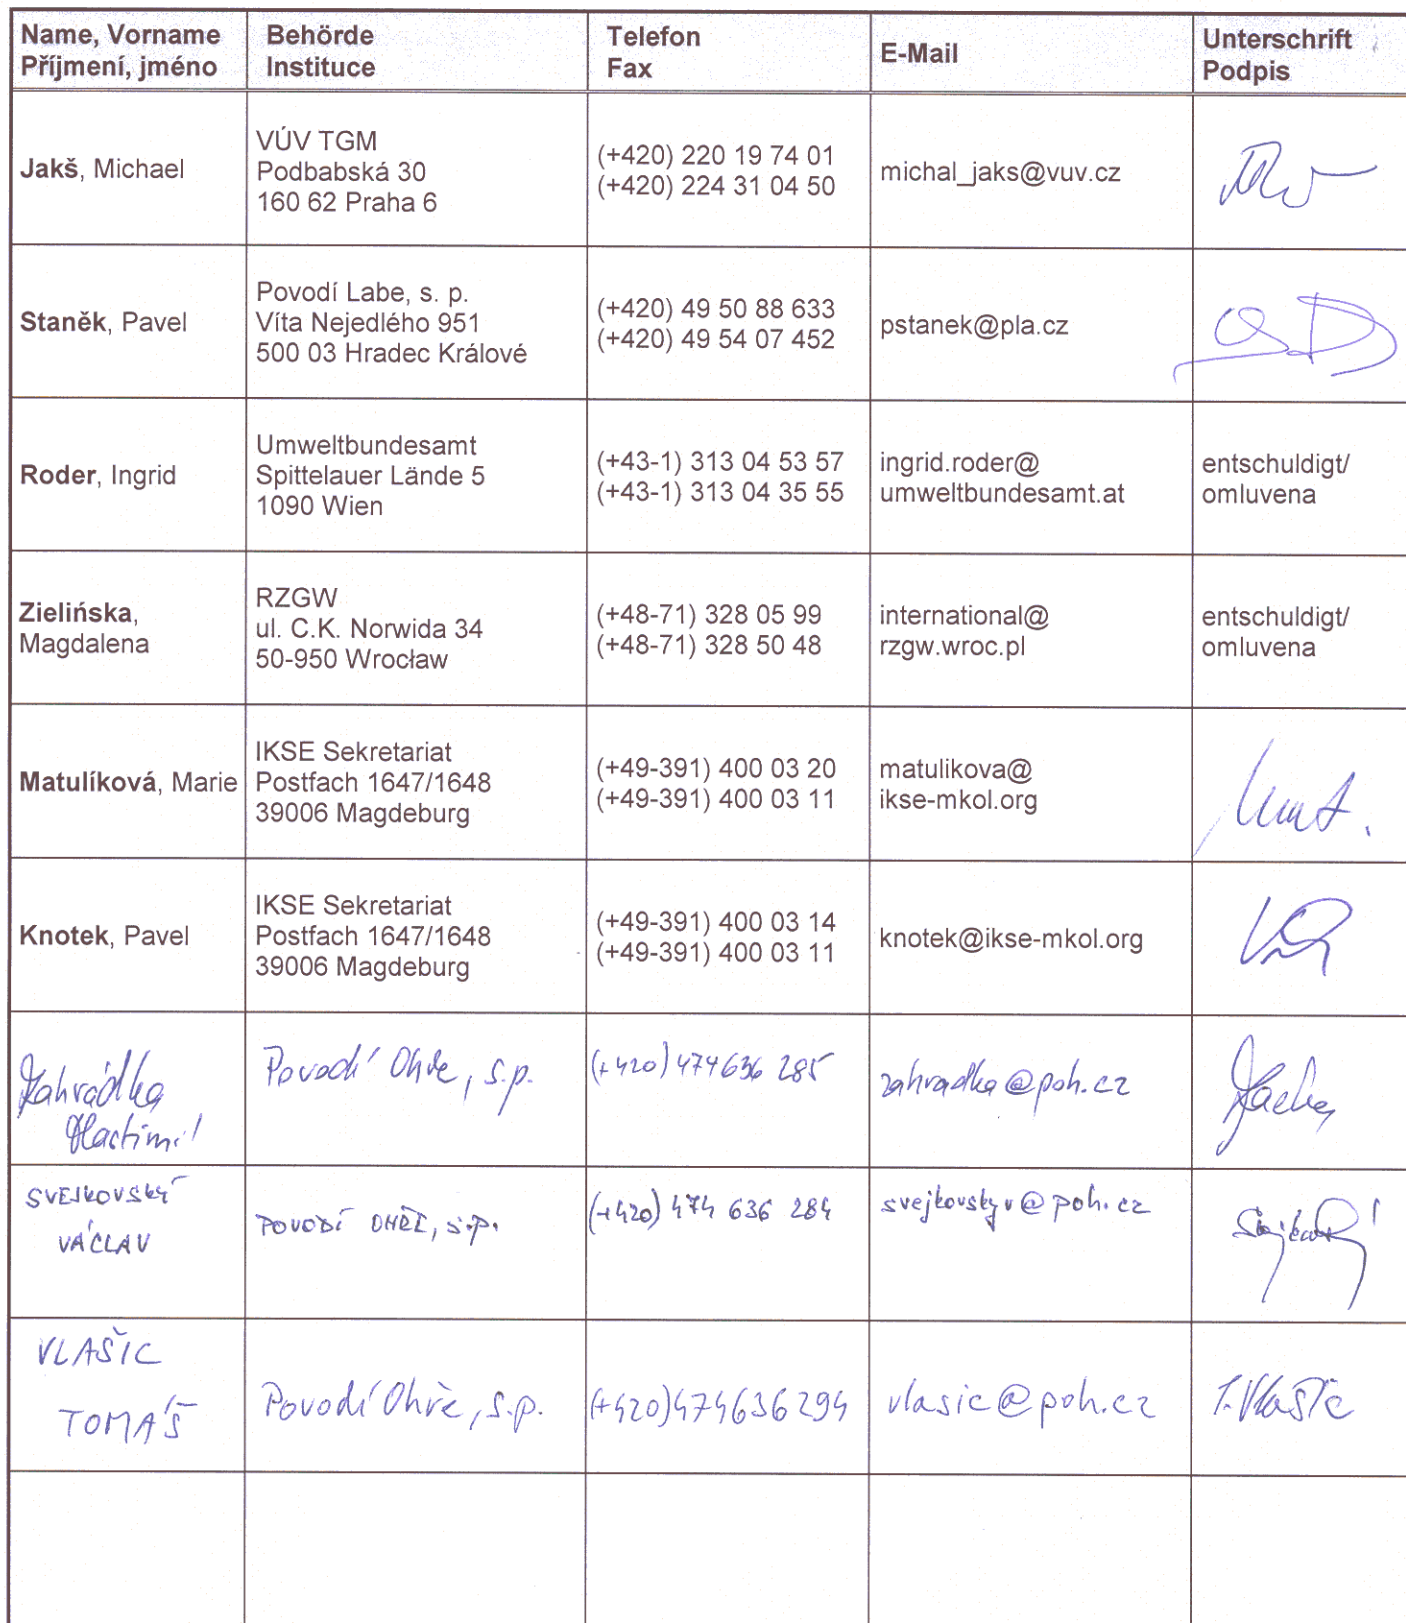 Name, Vorname
Příjmení, jméno
Behörde
Instituce
Telefon
Fax
E-Mail
Unterschrift
Podpis
Jakš, Michael
VÚV TGM
Podbabská 30
160 62 Praha 6
(+420) 220 19 74 01
(+420) 224 31 04 50
michal_jaks@vuv.cz
Staněk, Pavel
Povodí Labe, s. p.
Víta Nejedlého 951
500 03 Hradec Králové
(+420) 49 50 88 633
(+420) 49 54 07 452
pstanek@pla.cz
Roder, Ingrid
Umweltbundesamt
Spittelauer Lände 5
1090 Wien
(+43-1) 313 04 53 57
(+43-1) 313 04 35 55
ingrid.roder@
umweltbundesamt.at
entschuldigt/
omluvena
Zielińska,
Magdalena
RZGW
ul. C.K. Norwida 34
50-950 Wrocław
(+48-71) 328 05 99
(+48-71) 328 50 48
international@
rzgw.wroc.pl
entschuldigt/
omluvena
Matulíková, Marie
IKSE Sekretariat
Postfach 1647/1648
39006 Magdeburg
(+49-391) 400 03 20
(+49-391) 400 03 11
matulikova@
ikse-mkol.org
Knotek, Pavel
IKSE Sekretariat
Postfach 1647/1648
39006 Magdeburg
(+49-391) 400 03 14
(+49-391) 400 03 11
knotek@ikse-mkol.org
Zahrádka
Vlastimil
Povodí Ohře, s.p.
(+420) 474 636 285
zahradka@poh.cz
SVEJKOVSKÝ
VÁCLAV
POVODÍ OHŘE, s.p.
(+420) 474 636 284
svejkovskyv@poh.cz
VLAŠIC
TOMÁŠ
Povodí Ohře, s.p.
(+420)474636294
vlasic@poh.cz
T. Vlašic